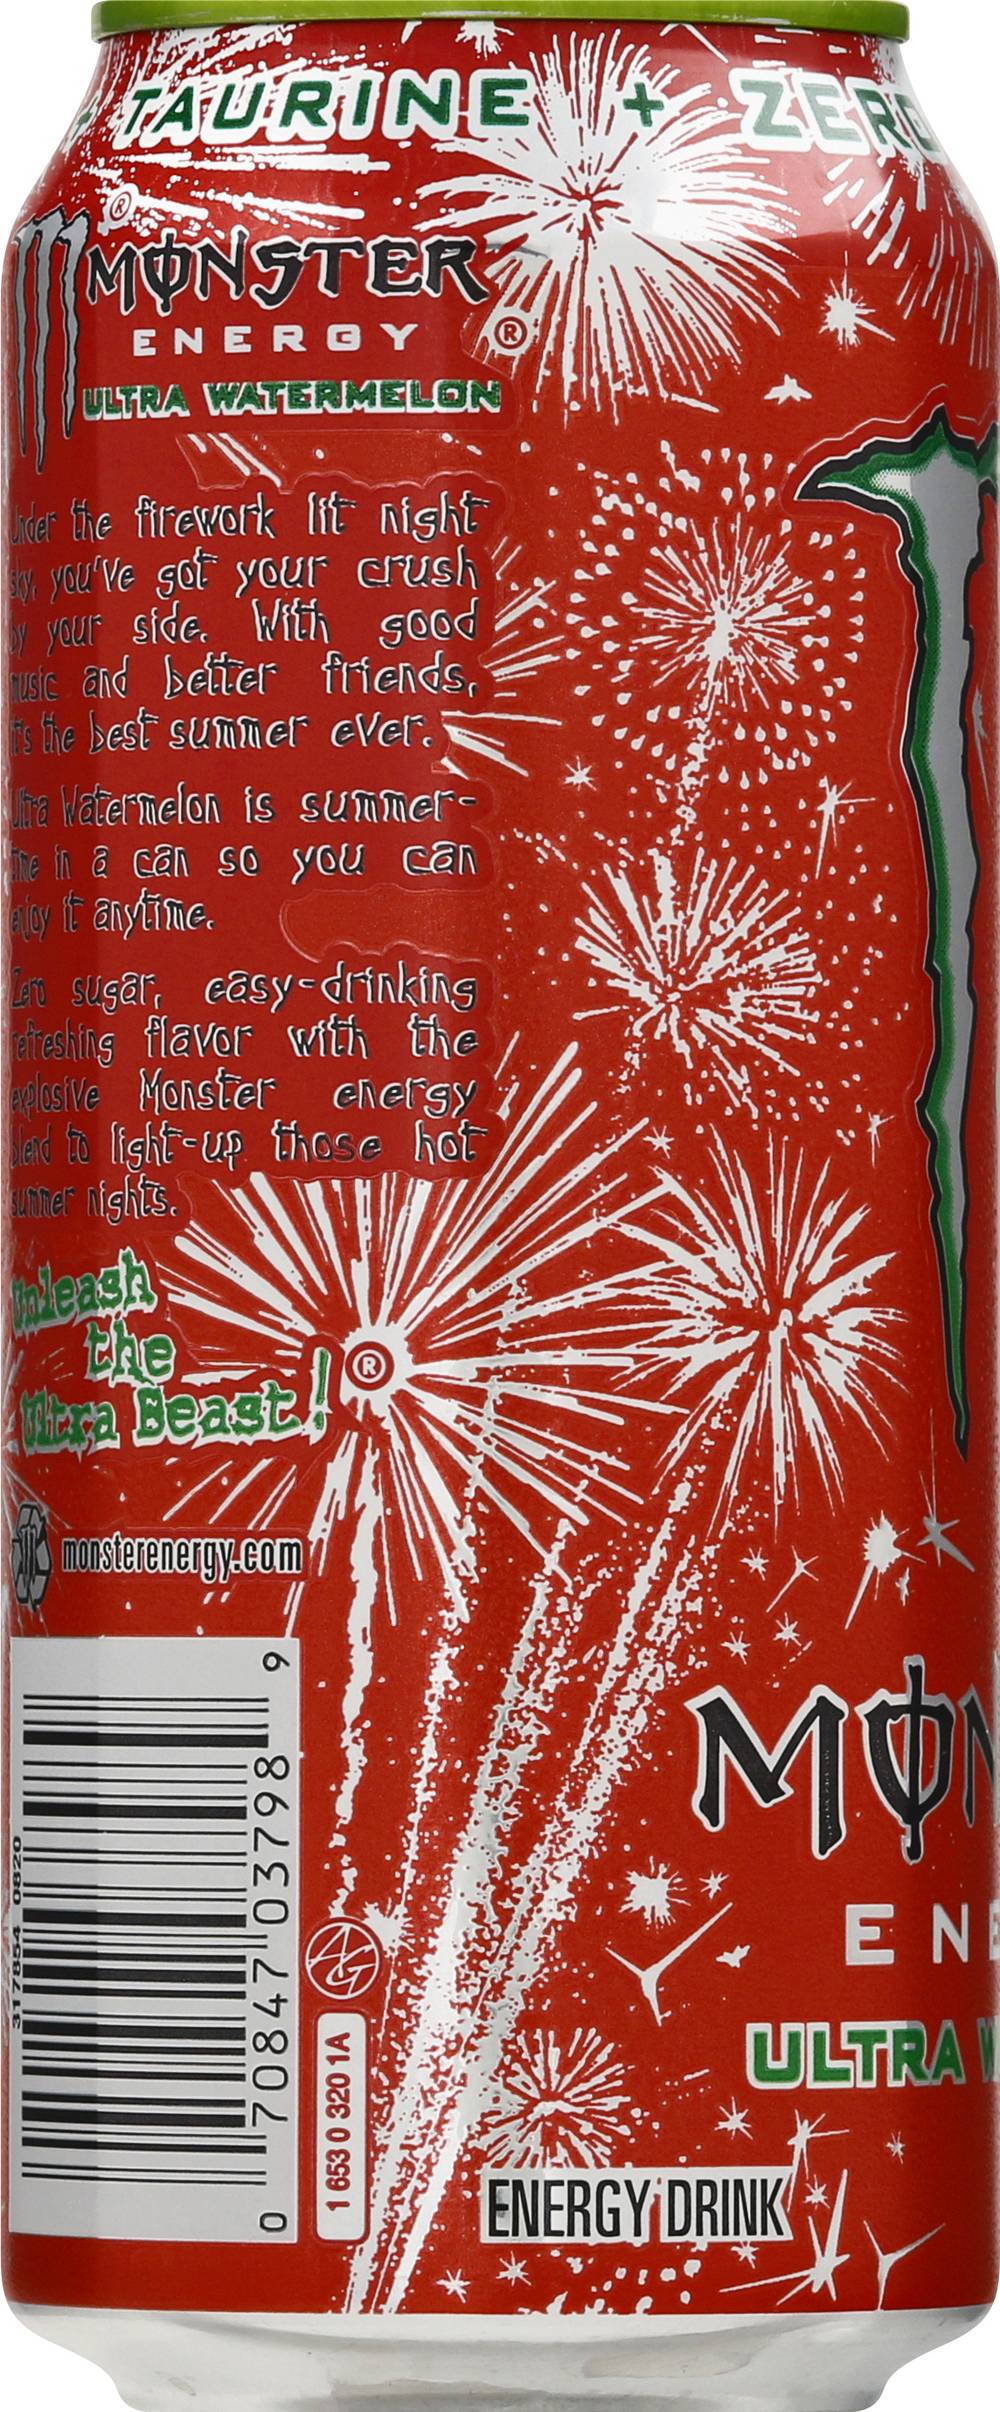 TAURINE + ZERO
®
MONSTER
ENERGY ®
ULTRA WATERMELON
Under the firework lit night
sky, you've got your crush
by your side. With good
music and better friends,
it's the best summer ever.
Ultra Watermelon is summer-
time in a can so you can
enjoy it anytime.
Zero sugar, easy-drinking
refreshing flavor with the
explosive Monster energy
blend to light-up those hot
summer nights.
Unleash
the
Ultra Beast! ®
monsterenergy.com
0 70847 03798 9
317854 0820
1 653 0 320 1A
MON
ENE
ULTRA W
ENERGY DRINK